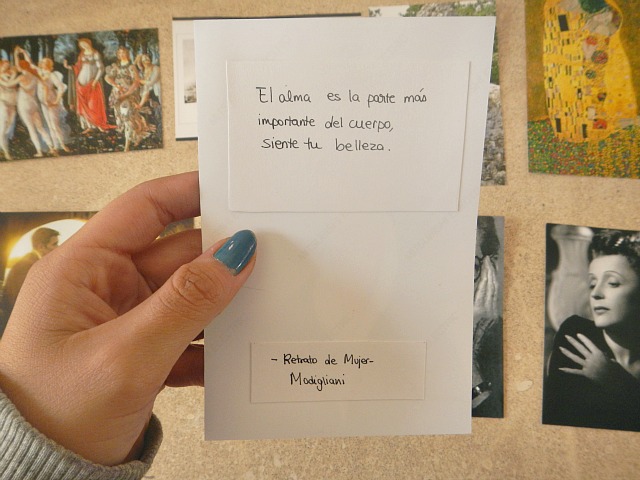 El alma es la parte más
importante del cuerpo,
siente tu belleza.
- Retrato de Mujer-
Modigliani